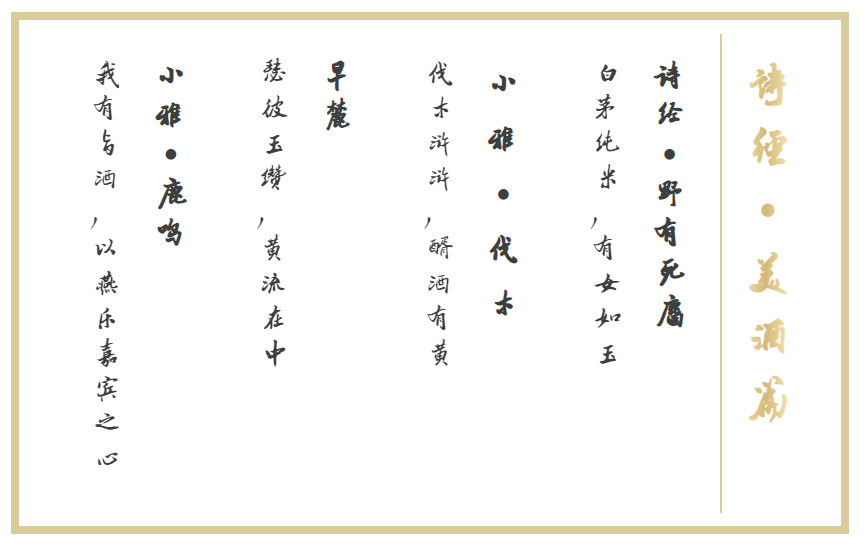 詩經•美酒篇
诗经•野有死腐
白茅纯米，有女如玉
小雅•伐木
伐木浒浒，醑酒有黄
早麓
瑟彼玉缵，黄流在中
小雅•鹿鸣
我有旨酒，以燕乐嘉宾之心